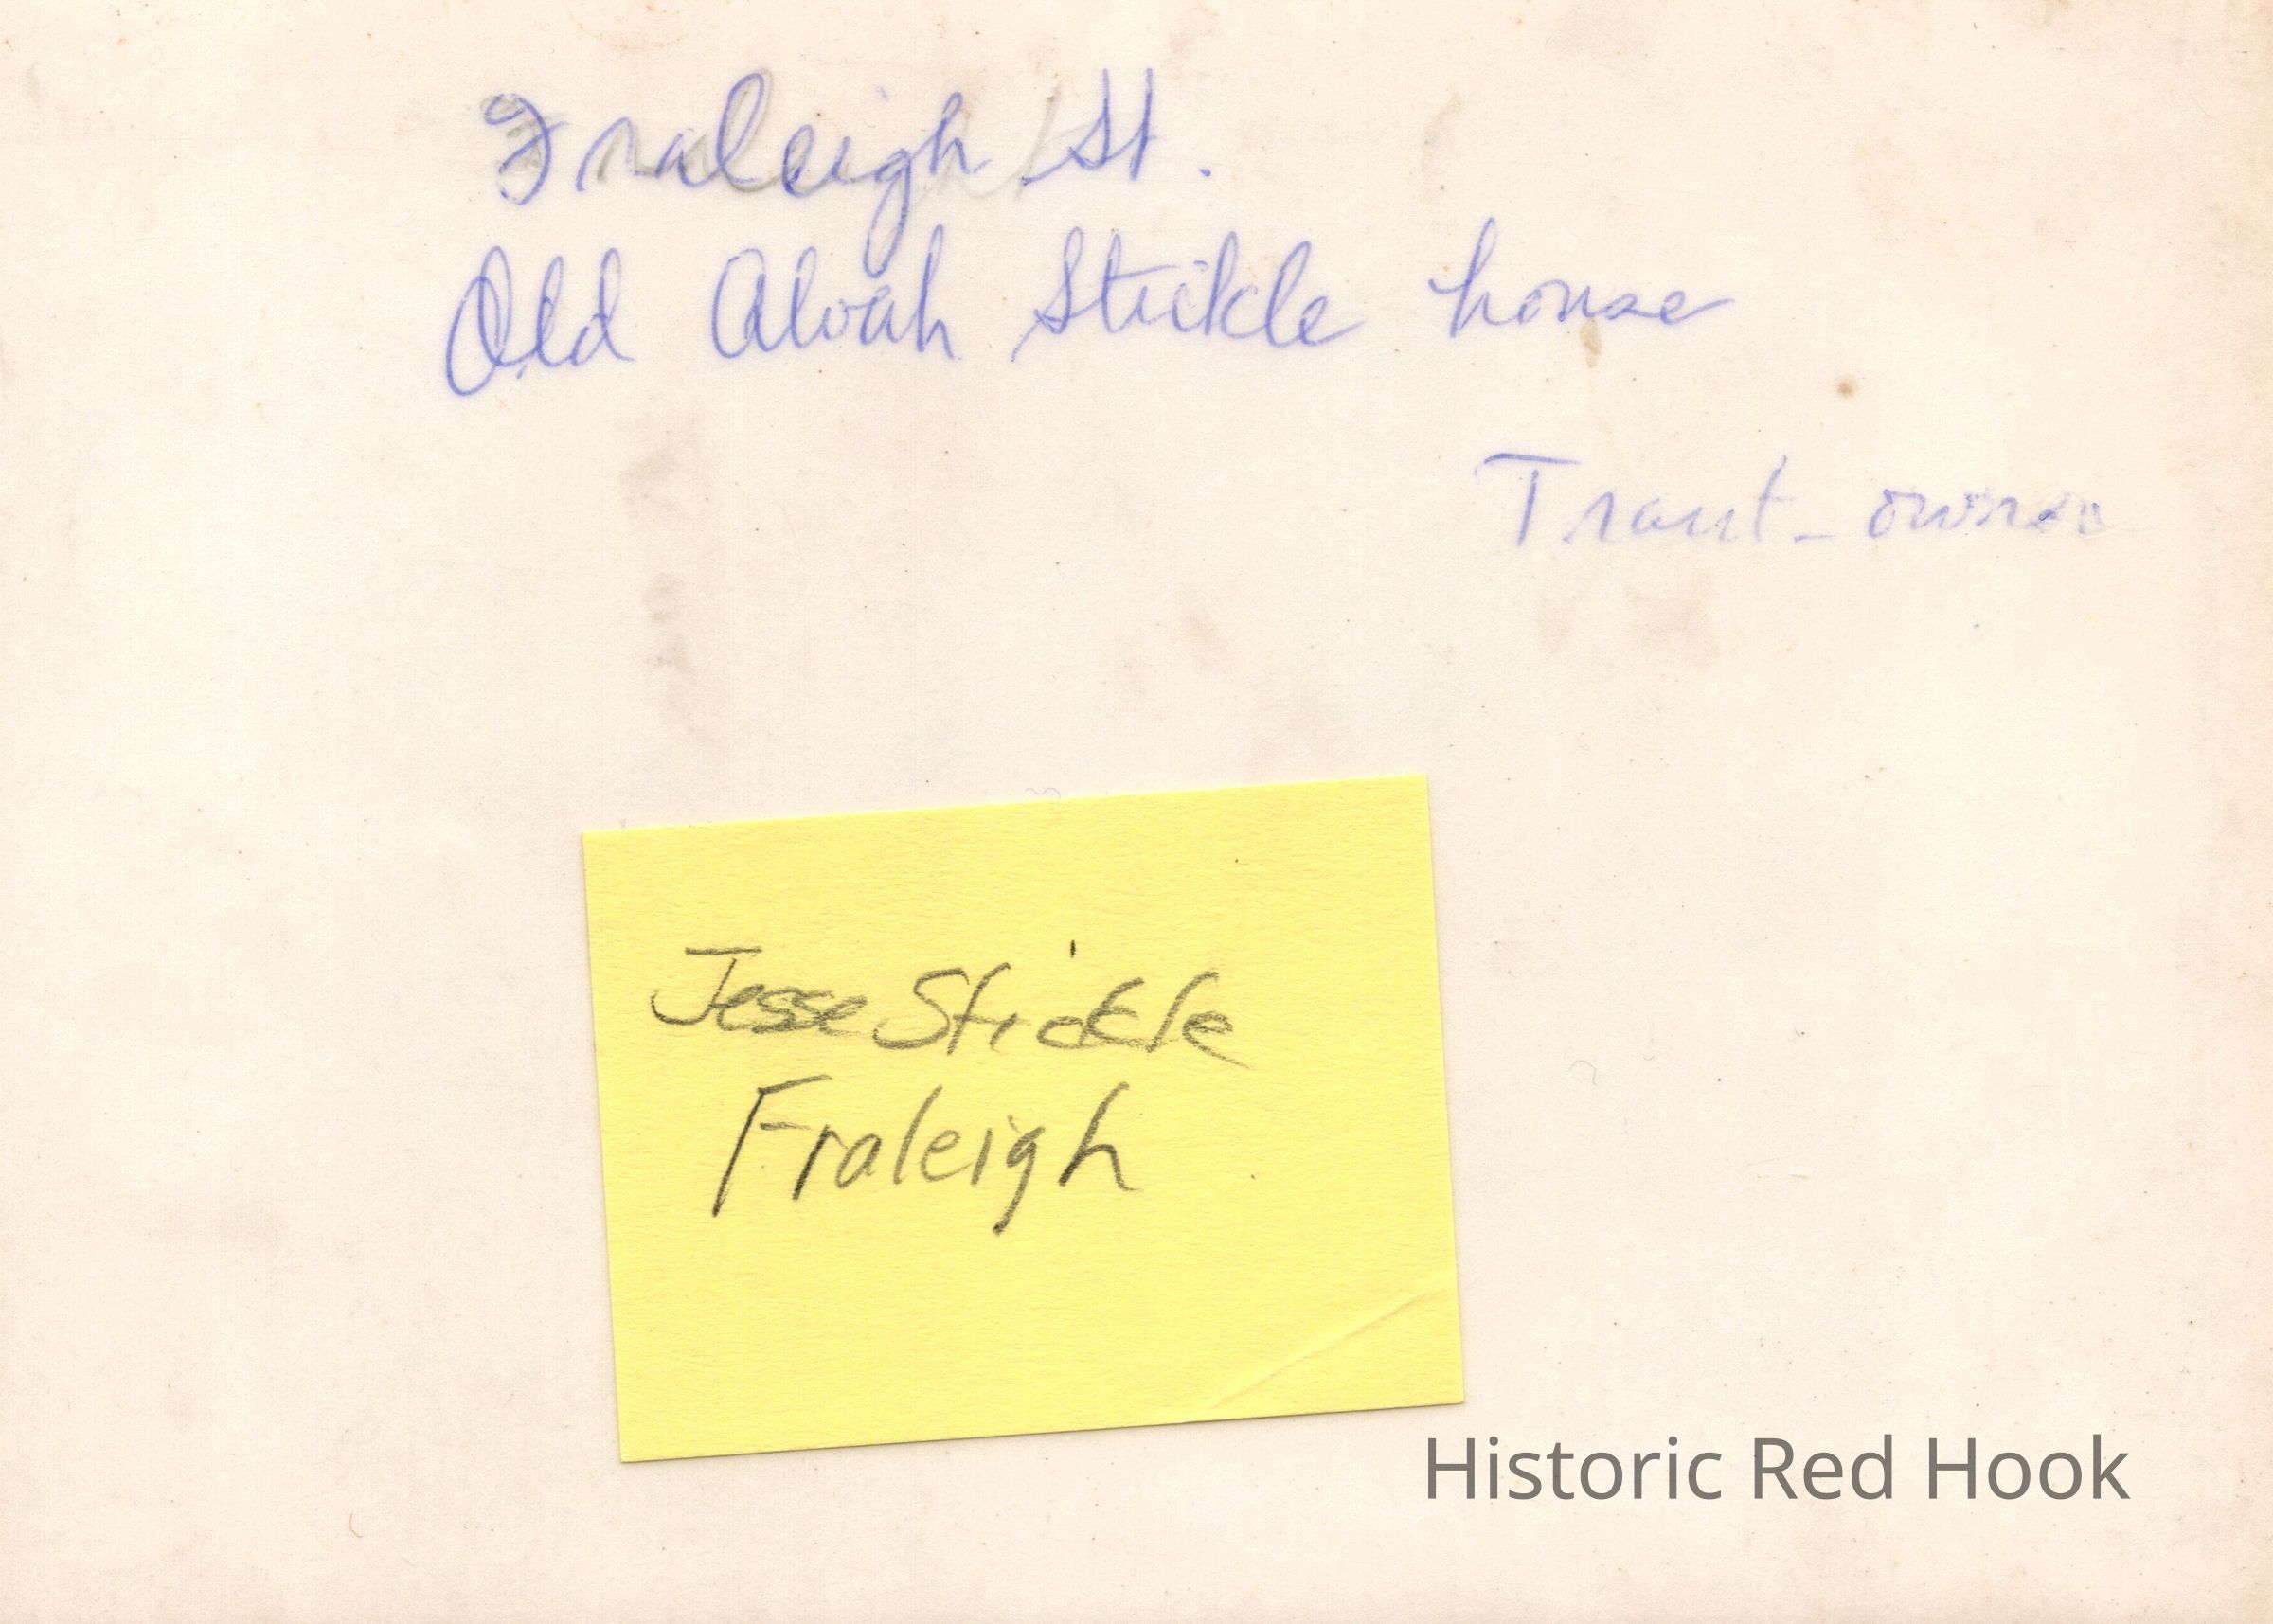 Fraleigh St.
Old Alvah Stickle house
Traut - owner
Jesse Stickle
Fraleigh
Historic Red Hook